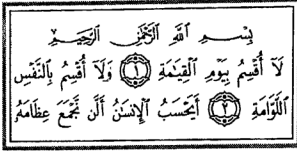 بِسْمِ اللَّهِ الرَّحْمَٰنِ الرَّحِيمِ
لَآ أُقْسِمُ بِيَوْمِ ٱلْقِيَٰمَةِ ١ وَلَآ أُقْسِمُ بِٱلنَّفْسِ
ٱللَّوَّامَةِ ٢ أَيَحْسَبُ ٱلْإِنسَٰنُ أَلَّن نَّجْمَعَ عِظَامَهُۥ